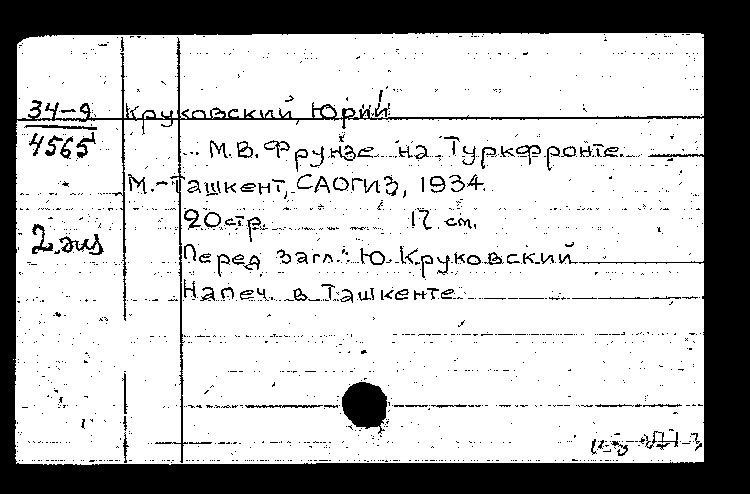 34-9
4565
2 экз
Круковский, Юрий
... М.В. Фрунзе на Туркфронте.
М.-Ташкент, САОГИЗ, 1934.
20 стр. 17 см.
Перед загл.: Ю. Круковский
Напеч. в Ташкенте